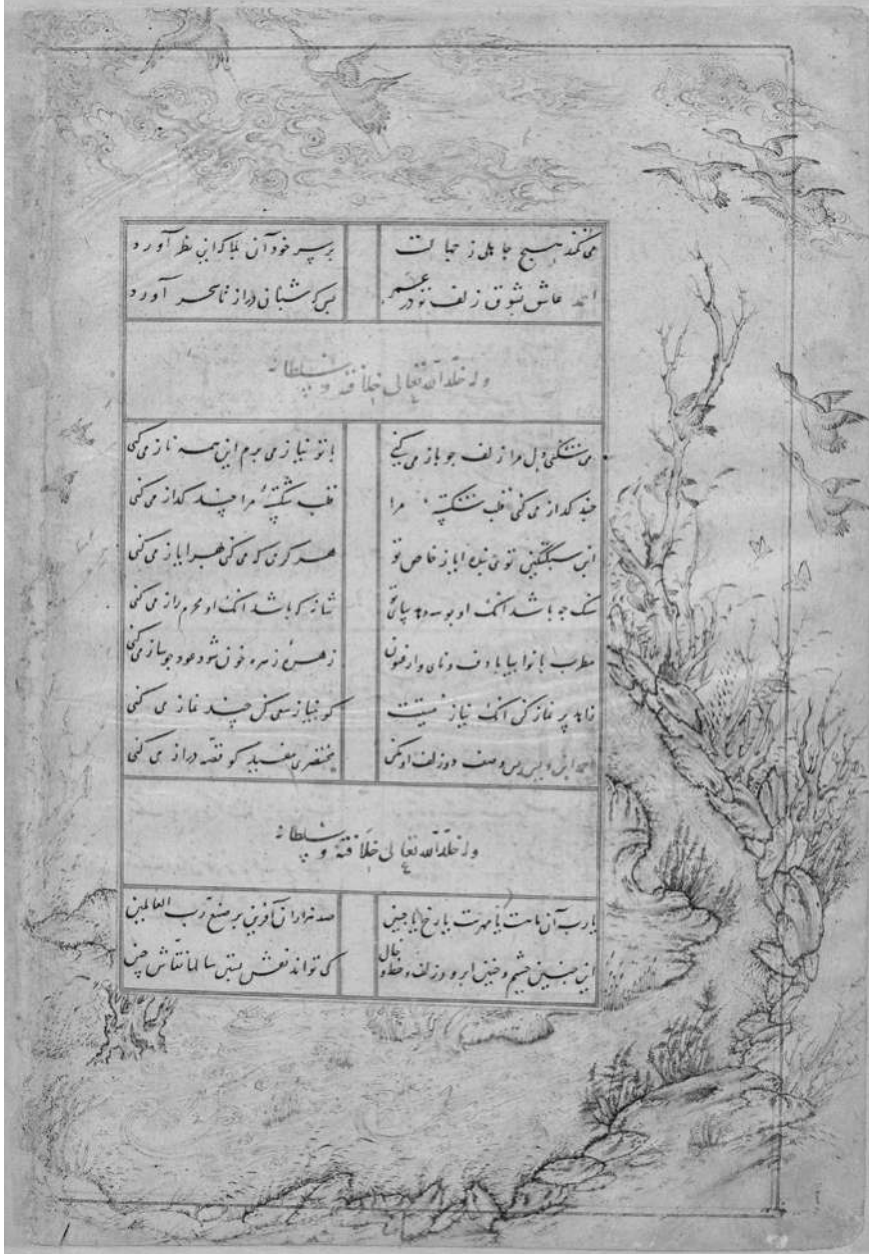 می‌کند هیچ جا بلی ز خیالت بر سر خود آن بلا که این نظر آورد
احمد عاش شوق زلف تو در عمر بس که شبان دراز تا سحر آورد
وله خلد الله تعالی خلافته و سلطانه
می‌شکنی دل مرا زلف چو باز می‌کنی با تو نیاز می‌برم این همه ناز می‌کنی
چند گداز می‌کنی قلب شکسته مرا قلب شکسته مرا چند گداز می‌کنی
ابن سبکتگین توئی بنده ایاز خاص تو هر کرمی که می‌کنی بهر ایاز می‌کنی
سنگ چه باشد آنک او بوسه دهد بپای تو شانه که باشد آنک او محرم راز می‌کنی
مطرب بانوا بیا با دف و نای و ارغنون زهره ز زهره خون شود عود چو ساز می‌کنی
زاهد پر نماز کن آنک نیاز نیستت کو نیاز سعی کن چند نماز می‌کنی
احمد وصف دو زلف او مکن مختصری مفید کو قصه دراز می‌کنی
وله خلد الله تعالی خلافته و سلطانه
یارب آن ماهست یا مهرست یا رخ یا جبین صد هزاران آفرین بر صنع رب العالمین
این چنین چشم و چنین ابرو و زلف و خط و خال کی تواند نقش بستن سالها نقاش چین